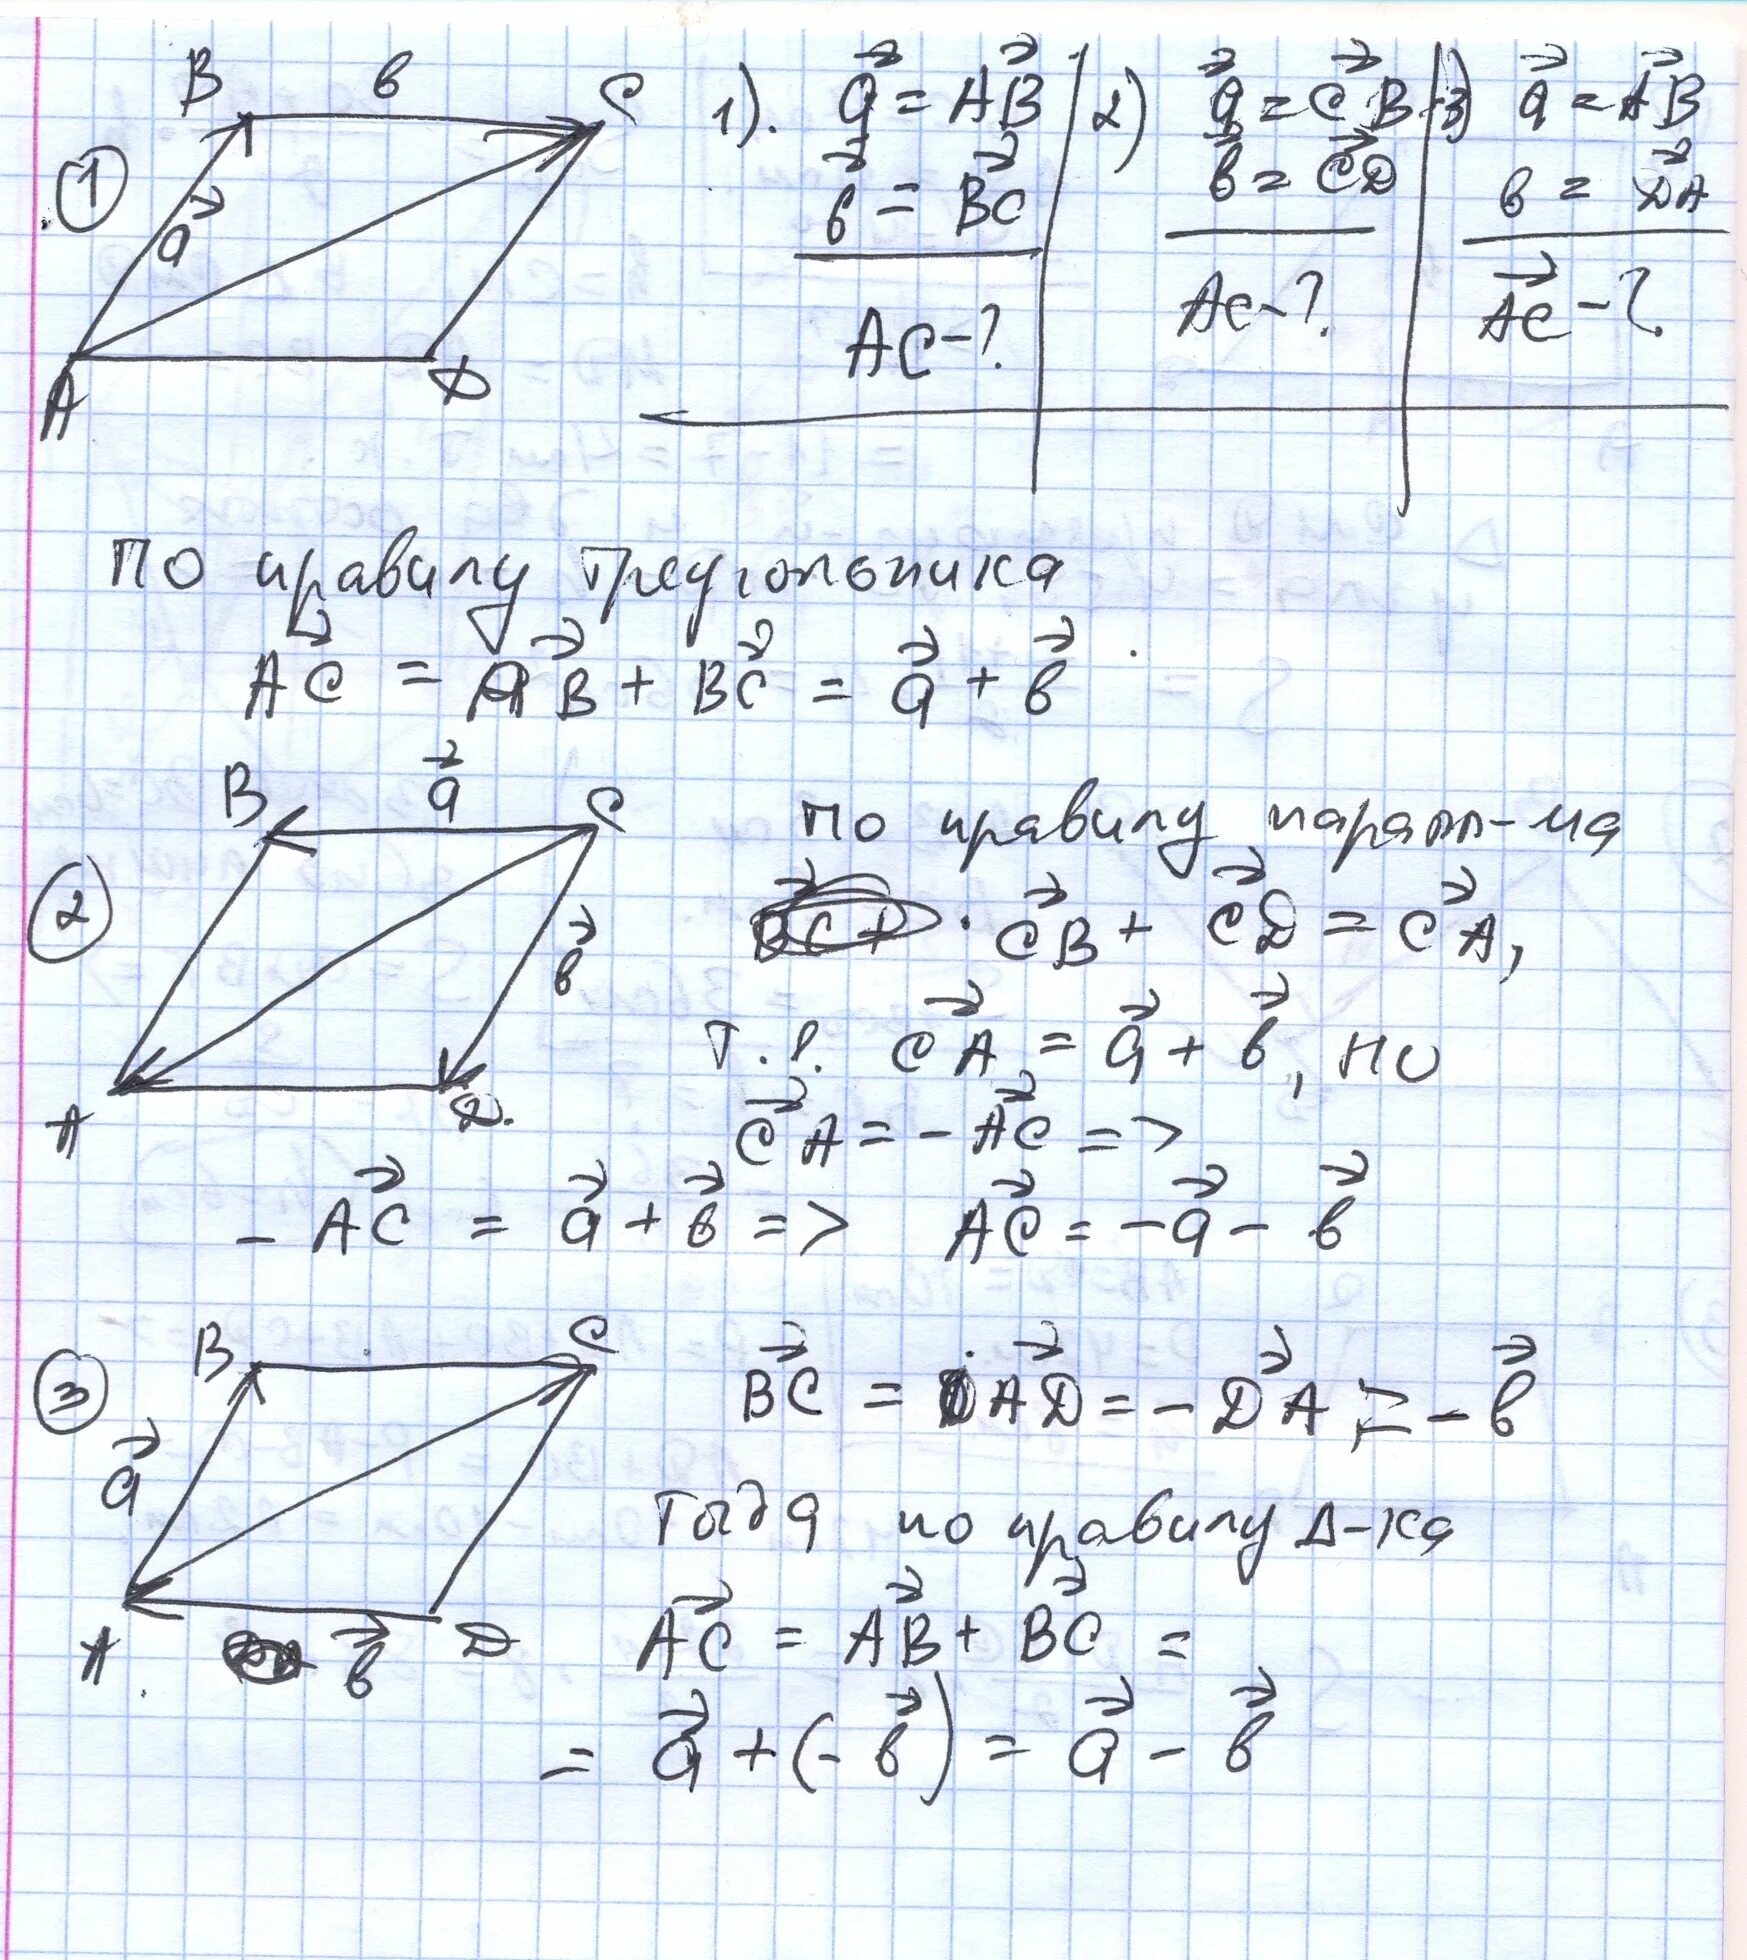 1
B в C
a⃗
A D
1). a⃗ = AB⃗
в⃗ = BC⃗
AC-?
2) a⃗ = CB⃗
в⃗ = CD⃗
AC-?
3) a⃗ = AB⃗
в = DA⃗
AC⃗ - ?
По правилу треугольника
AC⃗ = AB⃗ + BC⃗ = a⃗ + в⃗
2
B a⃗ C
в⃗
A D.
По правилу паралл-ма
CB⃗ + CD⃗ = CA⃗,
т.е. CA⃗ = a⃗ + в⃗, но
CA⃗ = - AC⃗ =>
- AC⃗ = a⃗ + в⃗ => AC⃗ = -a⃗ - в⃗
3
B C
a⃗
A в⃗ D
BC⃗ = AD⃗ = - DA⃗ = - в⃗
Тогда по правилу Δ-ка
AC⃗ = AB⃗ + BC⃗ =
= a⃗ + (- в⃗) = a⃗ - в⃗